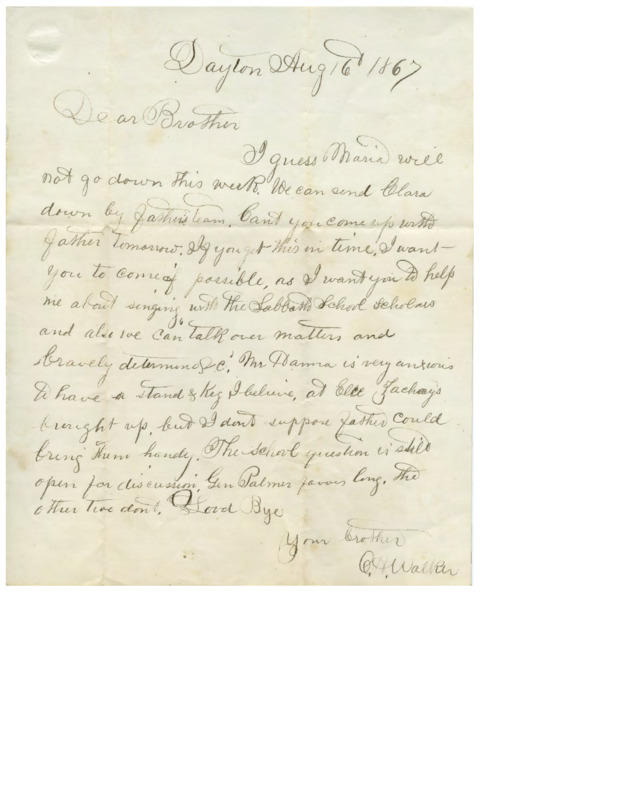 Dayton Aug 16th 1867
Dear Brother
I guess Maria will
not go down this week. We can send Clara
down by father's team. Cant you come up with
father tomorrow. If you get this in time, I want
you to come if possible, as I want you to help
me about singing with the Sabbath School scholars
and also we can talk over matters and
bravely determine &c. Mr Hanna is very anxious
to have a stand & Keg I believe, at Zacharys
brought up, but I dont suppose father could
bring them handy. The school question is still
open for discussion. Gen Palmer favors long. The
other two dont. Good Bye
Your brother
C.H. Walker